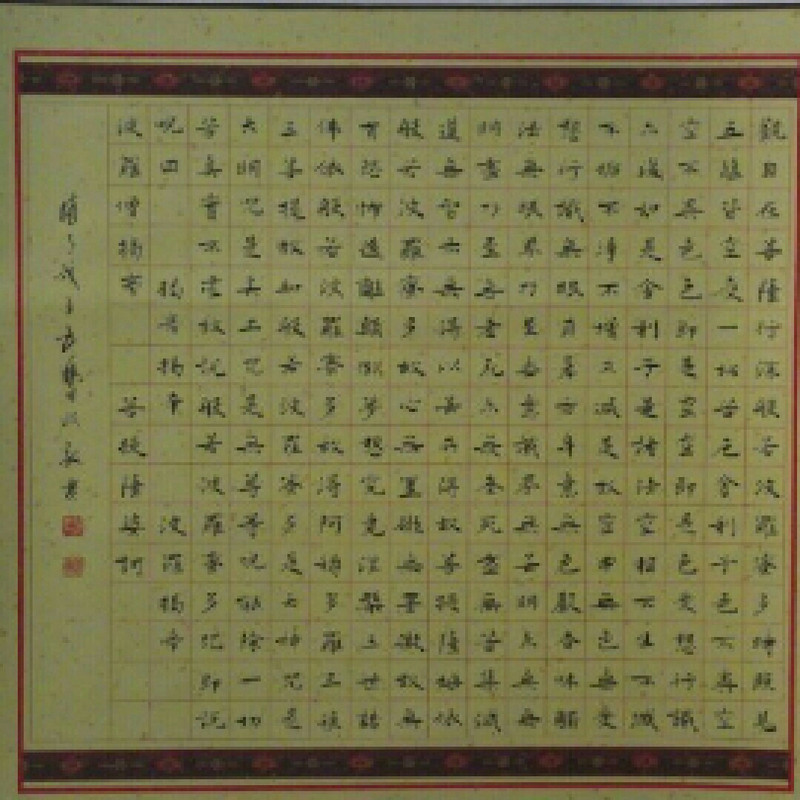 觀自在菩薩行深般若波羅蜜多時照見
五蘊皆空度一切苦厄舍利子色不異空
空不異色色即是空空即是色受想行識
亦復如是舍利子是諸法空相不生不滅
不垢不淨不增不減是故空中無色無受
想行識無眼耳鼻舌身意無色聲香味觸
法無眼界乃至無意識界無無明亦無無
明盡乃至無老死亦無老死盡無苦集滅
道無智亦無得以無所得故菩提薩埵依
般若波羅蜜多故心無罣礙無罣礙故無
有恐怖遠離顛倒夢想究竟涅槃三世諸
佛依般若波羅蜜多故得阿耨多羅三藐
三菩提故知般若波羅蜜多是大神咒是
大明咒是無上咒是無等等咒能除一切
苦真實不虛故說般若波羅蜜多咒即說
咒曰 揭帝揭帝 波羅揭帝
波羅僧揭帝 菩提薩婆訶